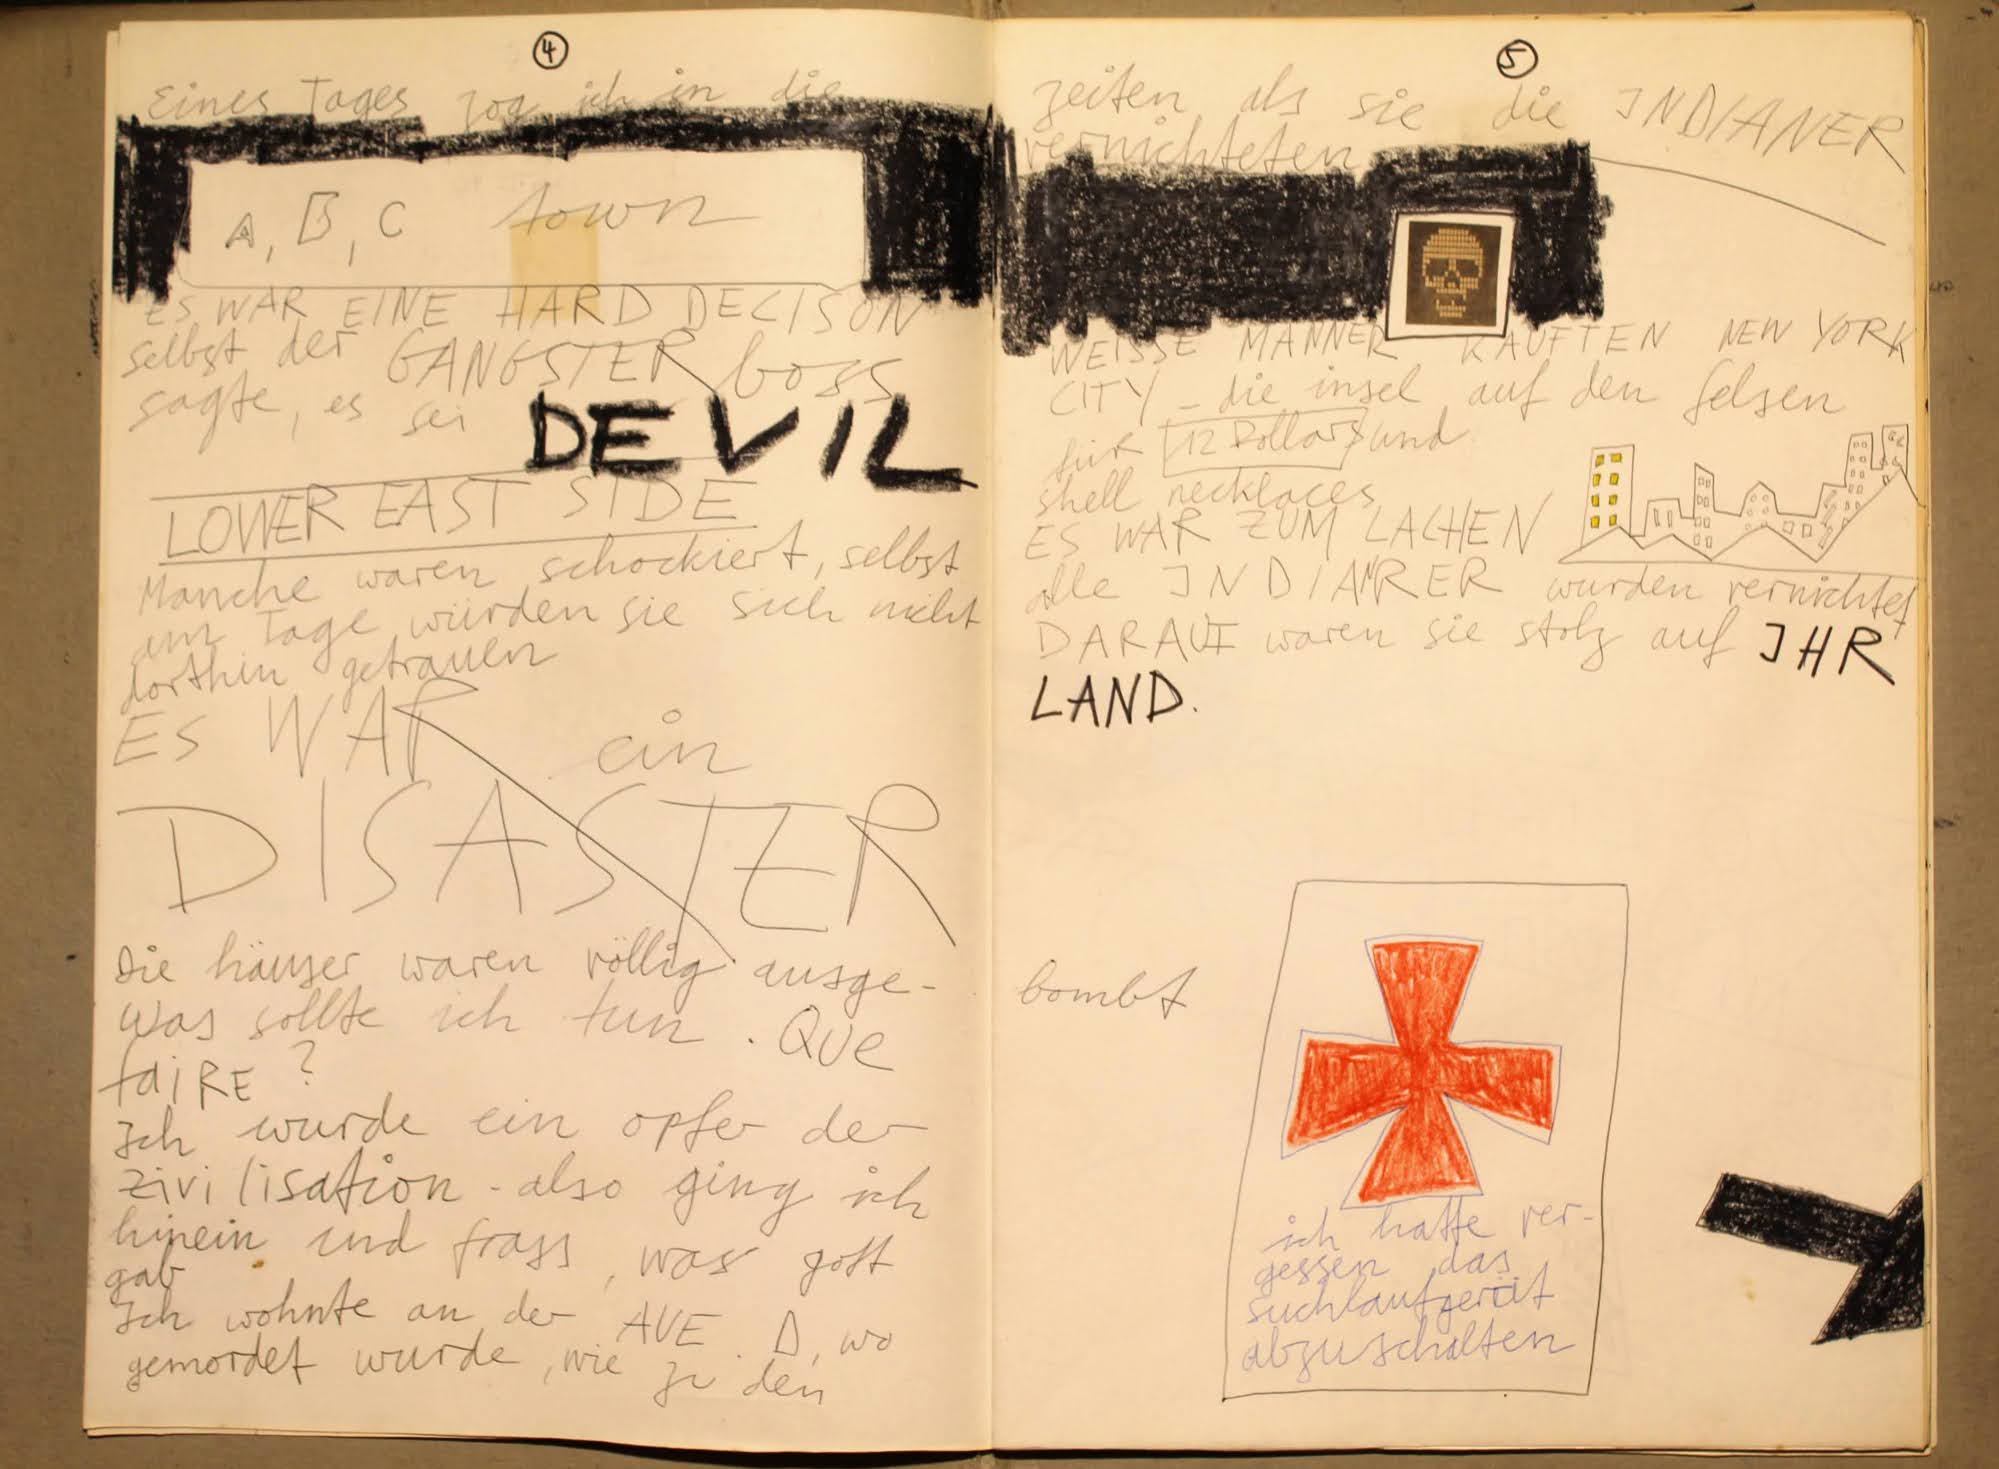 4
Eines Tages zog ich in die
A, B, C town
ES WAR EINE HARD DECISON
selbst der GANGSTER boss
sagte, es sei DEVIL
LOWER EAST SIDE
Manche waren schockiert, selbst
am Tage würden sie sich nicht
dorthin getrauen
ES WAR ein
DISASTER
Die häuser waren völlig ausge-
Was sollte ich tun. QUE
faIRE ?
Ich wurde ein opfer der
zivilisation - also ging ich
hinein und frass, was gott
gab
Ich wohnte an der AVE. D, wo
gemordet wurde, wie zu den
5
zeiten als sie die INDIANER
vernichteten
WEISSE MÄNNER KAUFTEN NEW YORK
CITY - die insel auf den felsen
für 12 Dollars und
shell necklaces
ES WAR ZUM LACHEN
alle wurden vernichtet
DARAUF waren sie stolz auf IHR
LAND.
bombt
ich hatte ver-
gessen das
suchlaufgerät
abzuschalten